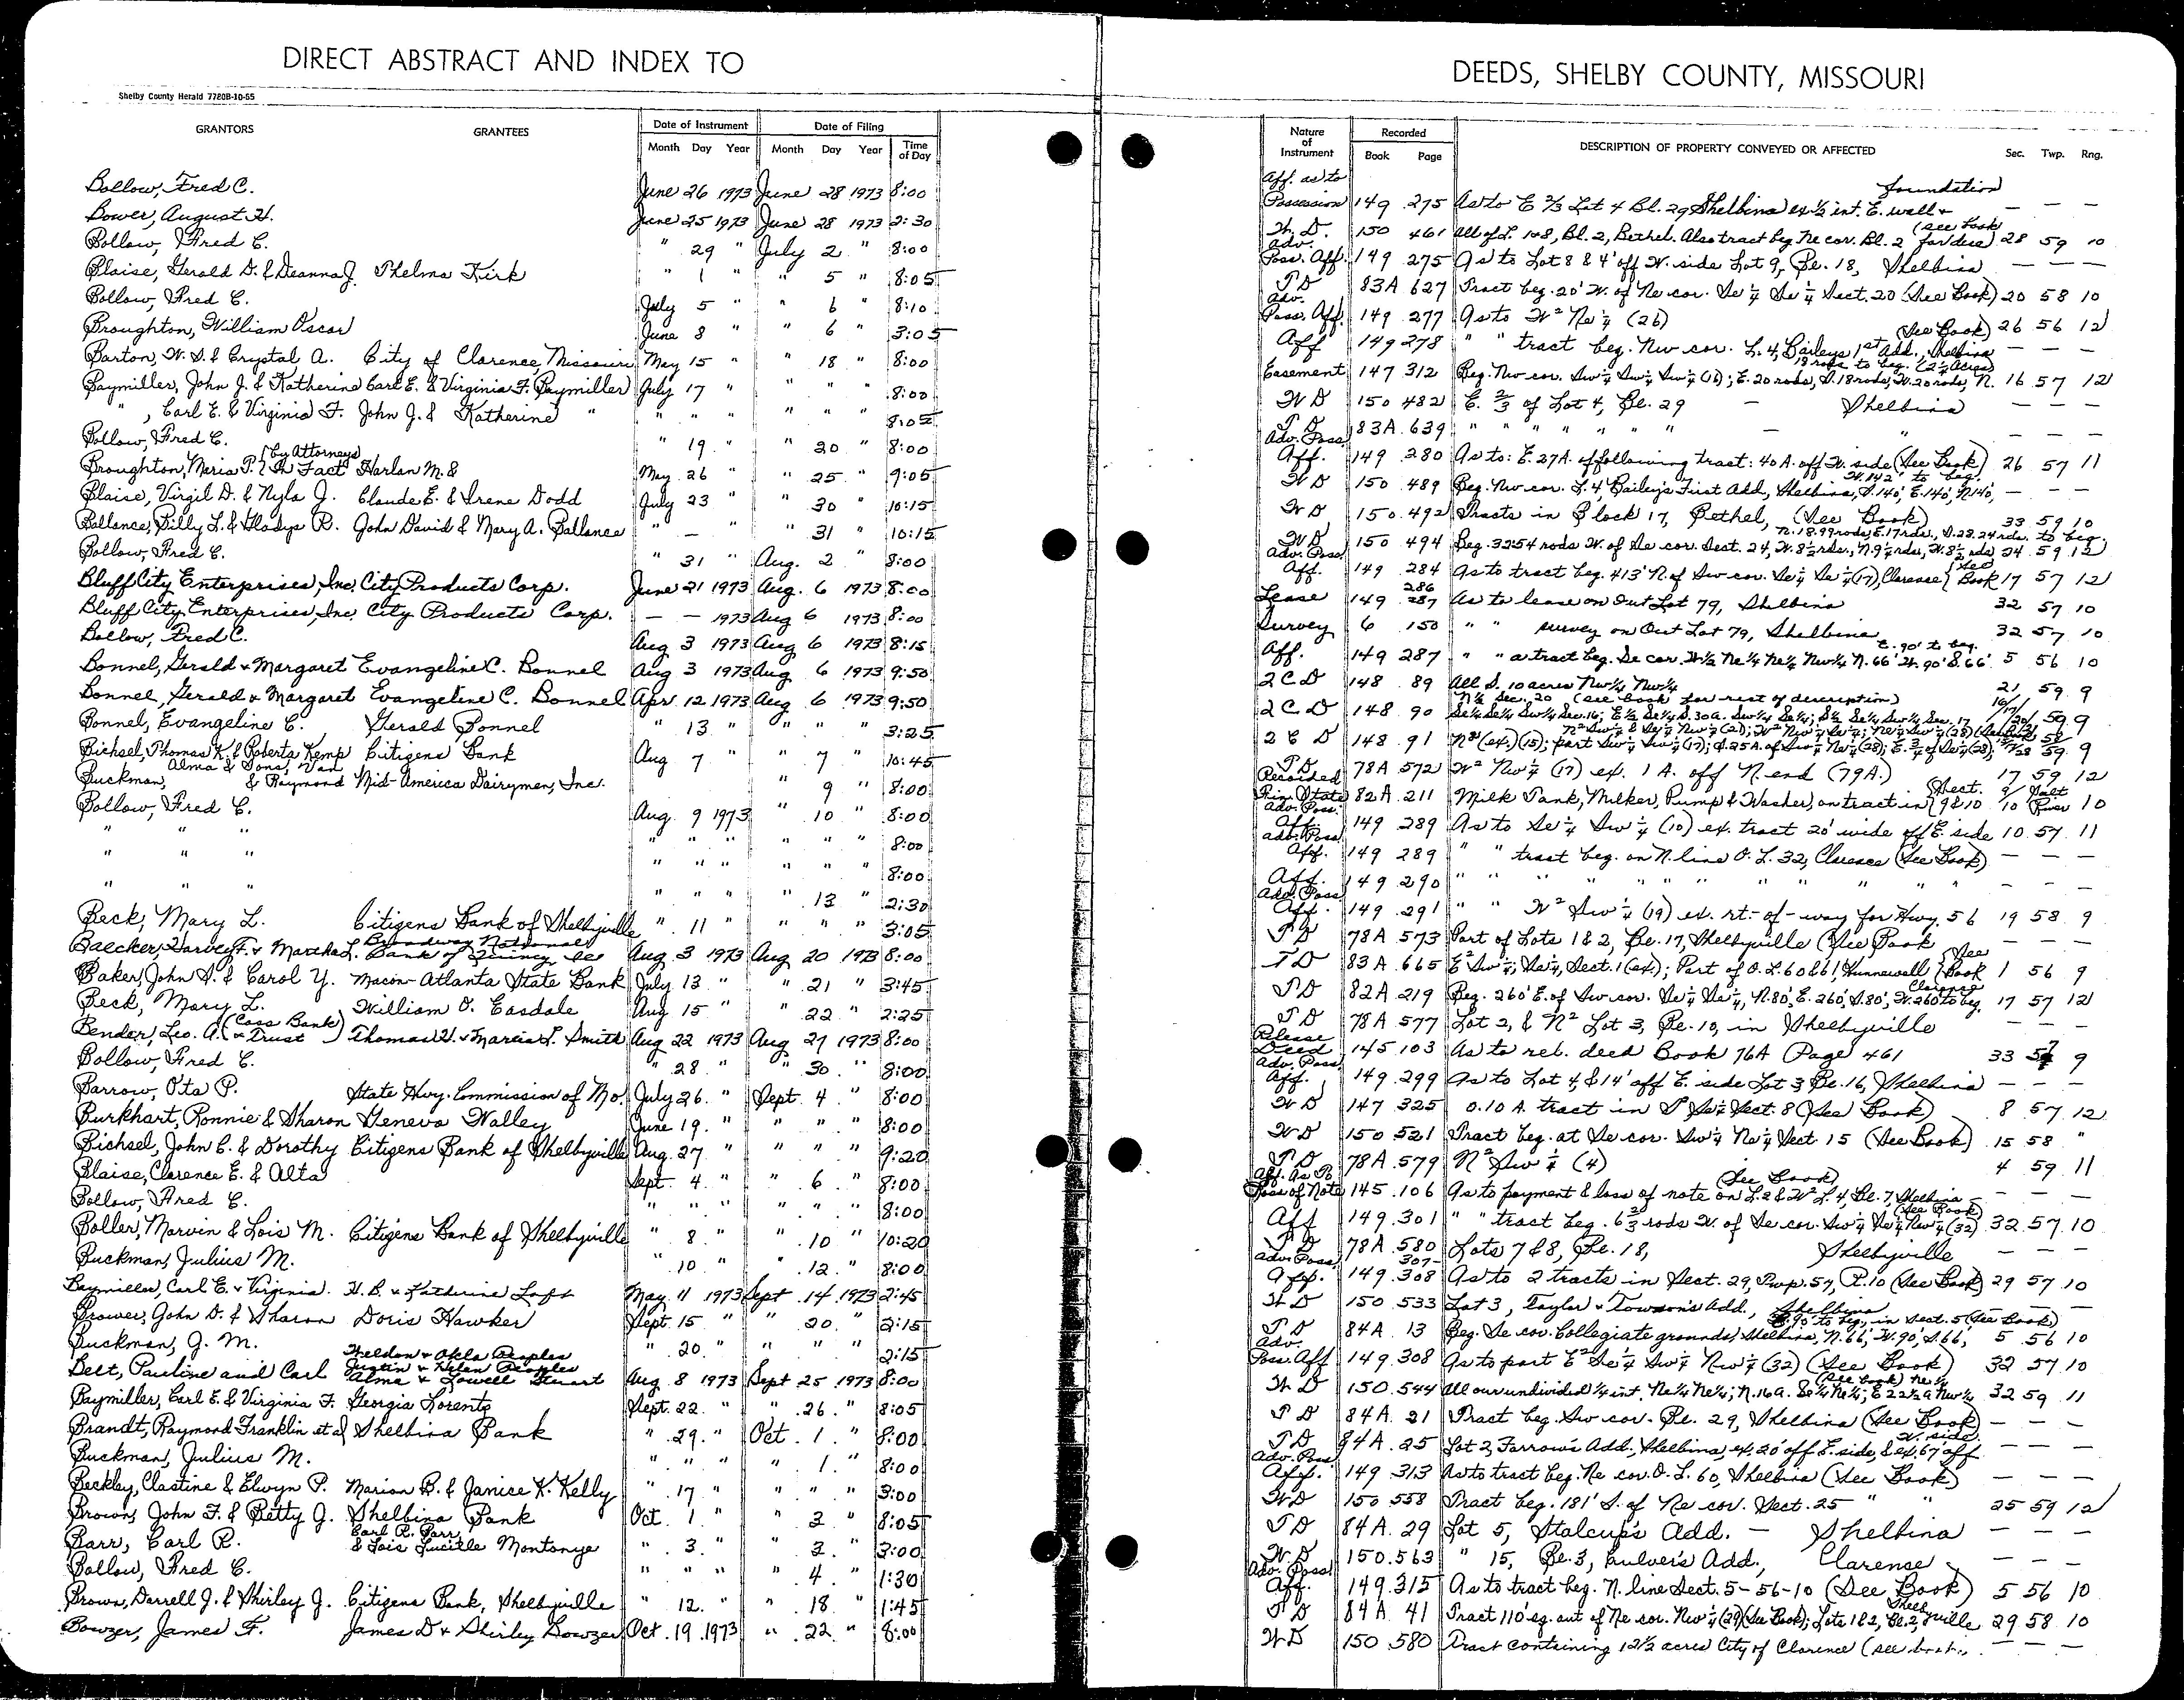 DIRECT ABSTRACT AND INDEX TO
Shelby County Herald 7780B-10-65
GRANTORS GRANTEES Date of Instrument Date of Filing
Month Day Year Month Day Year Time of Day
Bollow, Fred C. June 26 1973 June 28 1973 8:00
Bower, August H. June 25 1973 June 28 1973 2:30
Bollow, Fred C. " 29 " July 2 " 8:00
Blaise, Gerald D. & Deanna J. Thelma Kirk " 1 " " 5 " 8:05
Bollow, Fred C. July 5 " " 6 " 8:10
Broughton, William Oscar June 8 " " 6 " 3:05
Barton, W. S. & Crystal A. City of Clarence, Missouri May 15 " " 18 " 8:00
Baymiller, John J. & Katherine Carl E. & Virginia F. Baymiller July 17 " " " " 8:00
" , Carl E. & Virginia F. John J. & Katherine " " " " " " " 8:05
Bollow, Fred C. " 19 " " 20 " 8:00
Broughton, Maria P. (by Attorneys In Fact Harlan M. & May 26 " " 25 " 9:05
Blaise, Virgil D. & Nyla J. Claude E. & Irene Dodd July 23 " " 30 10:15
Ballance, Billy L. & Gladys R. John David & Mary A. Ballance " — " 31 " 10:15
Bollow, Fred C. " 31 " Aug. 2 " 8:00
Bluff City Enterprises, Inc. City Products Corp. June 21 1973 Aug. 6 1973 8:00
Bluff City Enterprises, Inc. City Products Corp. — — 1973 Aug 6 1973 8:00
Bollow, Fred C. Aug 3 1973 Aug 6 1973 8:15
Bonnel, Gerald & Margaret Evangeline C. Bonnel Aug 3 1973 Aug 6 1973 9:50
Bonnel, Gerald & Margaret Evangeline C. Bonnel Apr. 12 1973 Aug 6 1973 9:50
Bonnel, Evangeline C. Gerald Bonnel " 13 " " " " 3:25
Bichsel, Thomas K. & Roberta Kemp Citizens Bank Aug 7 " " 7 " 10:45
Buckman, Alma & Sons, Van & Raymond Mid-America Dairymen, Inc. " 9 " 8:00
Bollow, Fred C. Aug. 9 1973 " 10 " 8:00
" " " " " " " " " 8:00
" " " " " " " " " 8:00
" " " " " " " 13 " 2:30
Beck, Mary L. Citizens Bank of Shelbyville " 11 " " " " 3:05
Baecker, Harvey F. & Martha L. Broadway National Bank of Quincy Aug. 3 1973 Aug 20 1973 8:00
Baker, John S. & Carol Y. Macon-Atlanta State Bank July 13 " " 21 " 3:45
Beck, Mary L. William O. Easdale Aug 15 " " 22 " 2:25
Bender, Leo. A. (Cass Bank & Trust) Thomas H. & Marcia L. Smith Aug 22 1973 Aug 27 1973 8:00
Bollow, Fred C. " 28 " " 30 " 8:00
Barrow, Ota P. State Hwy. Commission of Mo. July 26. " Sept. 4 " 8:00
Burkhart, Ronnie & Sharon Geneva Walley June 19. " " " " 8:00
Bichsel, John C. & Dorothy Citizens Bank of Shelbyville Aug. 27 " " " " 9:20
Blaise, Clarence E. & Alta Sept. 4 " " 6 " 8:00
Bollow, Fred C. " " " " " " 8:00
Boller, Marvin & Lois M. Citizens Bank of Shelbyville " 8 " " 10 " 10:20
Buckman, Julius M. " 10 " " 12. " 8:00
Baymiller, Carl E. & Virginia. H. B. & Katherine Loft May 11 1973 Sept. 14 1973 2:45
Brower, John D. & Sharon Doris Hawker Sept. 15 " " 20. " 2:15
Buckman, J. M. " 20. " " " " 2:15
Belt, Pauline and Carl Sheldon & Okla Peoples Justin & Helen Peoples Alma & Lowell Stuart Aug 8 1973 Sept 25 1973 8:00
Baymiller, Carl E. & Virginia F. Georgia Lorentz Sept. 22. " " 26. " 8:05
Brandt, Raymond Franklin et al Shelbina Bank " 29. " Oct. 1. " 8:00
Buckman, Julius M. " " " " 1. " 8:00
Beckley, Clastine & Elwyn P. Marion B. & Janice K. Kelly " 17 " " " " 3:00
Brown, John F. & Betty J. Shelbina Bank Oct. 1 " " 2 " 8:05
Barr, Carl R. Carl R. Barr & Lois Lucille Montonye " 3. " " 3. " 3:00
Bollow, Fred C. " " " " 4. " 1:30
Brown, Darrell J. & Shirley J. Citizens Bank, Shelbyville " 12. " " 18 " 1:45
Bowzer, James F. James D & Shirley Bowzer Oct. 19. 1973 " 22 " 8:00
DEEDS, SHELBY COUNTY, MISSOURI
Nature of Instrument Recorded DESCRIPTION OF PROPERTY CONVEYED OR AFFECTED Sec. Twp. Rng.
Book Page
Aff. as to Possession 149 275 As to E 2/3 Lot 4 Bl. 29 Shelbina ex 1/2 int. E. wall & foundation — — —
W. D. 150 461 All of L. 1&8, Bl. 2, Bethel. Also tract beg Ne cor. Bl. 2 (see book for desc) 28 59 10
Adv. Poss. Aff. 149 275 As to Lot 8 & 4' off W. side Lot 9, Bl. 18, Shelbina — — —
T D 83A 627 Tract beg. 20' W. of Ne cor. Se 1/4 Se 1/4 Sect. 20 (See Book) 20 58 10
Adv. Poss. Aff. 149 277 As to W² Ne 1/4 (26) 26 56 12
Aff 149 278 " " tract beg. Nw cor. L. 4, Baileys 1st Add., Shelbina (See Book) — — —
Easement 147 312 Beg. Nw cor. Sw 1/4 Sw 1/4 Sw 1/4 (16); E. 20 rods, S. 18 rods, W. 20 rods, N. 18 rods to beg. (2 1/4 Acres) 16 57 12
W D 150 482 E. 2/3 of Lot 4, Bl. 29 — Shelbina — — —
T D 83A 639 " " " " " " — " — — —
Adv. Poss. Aff. 149 280 As to: E. 27 A. of following tract: 40 A. off W. side (See Book) 26 57 11
W D 150 489 Beg. Nw cor. L. 4, Bailey's First Add, Shelbina, S. 140', E. 140', N. 140', W. 142' to beg. — — —
W D 150 492 Tracts in Block 17, Bethel, (See Book) 33 59 10
W D 150 494 Beg. 3254 rods W. of Se cor. Sect. 24, W. 8 1/2 rds., N. 9 1/2 rds, W. 8 1/2 rds, N. 18.99 rods, E. 17 rds., S. 28.24 rds. to beg. 24 59 12
Adv. Poss. Aff. 149 284 As to tract beg. 413' N. of Sw cor. Se 1/4 Se 1/4 (17), Clarence (See Book 17 57 12
Lease 149 286 287 As to lease on Out Lot 79, Shelbina 32 57 10
Survey 6 150 " " survey on Out Lot 79, Shelbina 32 57 10
Aff. 149 287 " " a tract beg. Se cor. W 1/2 Ne 1/4 Ne 1/4 Nw 1/4 N. 66' W. 90' S. 66' E. 90' to beg. 5 56 10
2 C D 148 89 All S. 10 acres Nw 1/4 Nw 1/4 21 59 9
2 C D 148 90 N 1/2 Sec. 20 (see book for rest of description)
2 C D 148 91
T D 78A 572 W² Nw 1/4 (17) ex. 1 A. off N. end (79 A.) 17 59 12
Recorded Fin. State 82A 211 Milk Tank, Milker, Pump & Washer, on tract in Sect. 9 & 10 9/10 Salt River 10
Adv. Poss. Aff. 149 289 As to Se 1/4 Sw 1/4 (10) ex. tract 20' wide off E. side 10 57 11
Adv. Poss. Aff. 149 289 " " tract beg. on N. line O. L. 32, Clarence (See Book) — — —
Aff. 149 290 " " " " " " " " " " — — —
Adv. Poss. Aff. 149 291 " " W² Sw 1/4 (19) ex. rt.-of-way for Hwy. 56 19 58 9
T D 78A 573 Part of Lots 1 & 2, Bl. 17, Shelbyville (See Book — — —
T D 83A 665 E² Sw 1/4; Se 1/4, Sect. 1 (ex.); Part of O. L. 60 & 61, Hunnewell (See Book 1 56 9
T D 82A 219 Beg. 260' E. of Sw cor. Se 1/4 Se 1/4, N. 80', E. 260', S. 80', W. 260 to beg. Clarence 17 57 12
T D 78A 577 Lot 2, & N² Lot 3, Bl. 10, in Shelbyville — — —
Release Deed 145 103 As to rel. deed Book 76A (Page 461 33 57 9
Adv. Poss. Aff. 149 299 As to Lot 4, & 14' off E. side Lot 3 Bl. 16, Shelbina — — —
W D 147 325 0.10 A. tract in Se 1/4 Sect. 8 (See Book) 8 57 12
W D 150 521 Tract beg. at Se cor. Sw 1/4 Ne 1/4 Sect 15 (See Book) 15 58 "
T D 78A 579 N² Sw 1/4 (4) 4 59 11
Aff. As To Loss of Note 145 106 As to payment & loss of note on L. 2 & W² L. 4, Bl. 7, Shelbina (See Book) — — —
Aff 149 301 " " tract beg. 6 rods W. of Se cor. Sw 1/4 Se 1/4 Nw 1/4 (32) (See Book) 32 57 10
T D 78A 580 Lots 7 & 8, Bl. 18, Shelbyville — — —
Adv. Poss. Aff. 149 307-308 As to 2 tracts in Sect. 29, Twp. 57, R. 10 (See Book) 29 57 10
W D 150 533 Lot 3, Taylor & Towson's Add., Shelbina — — —
T D 84A 13 Beg. Se cor. Collegiate grounds, Shelbina, N. 66', W. 90', S. 66', E. 90' to beg., in Sect. 5 (See Book) 5 56 10
Adv. Poss. Aff 149 308 As to part E² Se 1/4 Sw 1/4 Nw 1/4 (32) (See Book) 32 57 10
W D 150 544 All our undivided 1/4 int. Ne 1/4 Ne 1/4; N. 16 a. Se 1/4 Ne 1/4; E 22 1/2 a Nw 1/4 Ne 1/4 (See book) 32 59 11
T D 84A 21 Tract beg. Sw cor. Bl. 29, Shelbina (See Book) — — —
T D 84A 25 Lot 2, Farrow's Add., Shelbina, ex. 20' off E. side, & ex. 67' off W. side — — —
Adv. Poss. Aff. 149 313 As to tract beg. Ne cor. O. L. 60, Shelbina (See Book) — — —
W D 150 558 Tract beg. 181' S. of Ne cor. Sect. 25 " " 25 59 12
T D 84A 29 Lot 5, Stalcup's Add. — Shelbina — — —
W D 150 563 " 15, Bl. 3, Culver's Add., Clarence — — —
Adv. Poss. Aff. 149 315 As to tract beg. N. line Sect. 5-56-10 (See Book) 5 56 10
T D 84A 41 Tract 110' sq. out of Ne cor. Nw 1/4 (29) (See Book); Lots 1 & 2, Bl. 2, Shelbyville 29 58 10
W D 150 580 Tract containing 12 1/2 acres City of Clarence (see book — — —